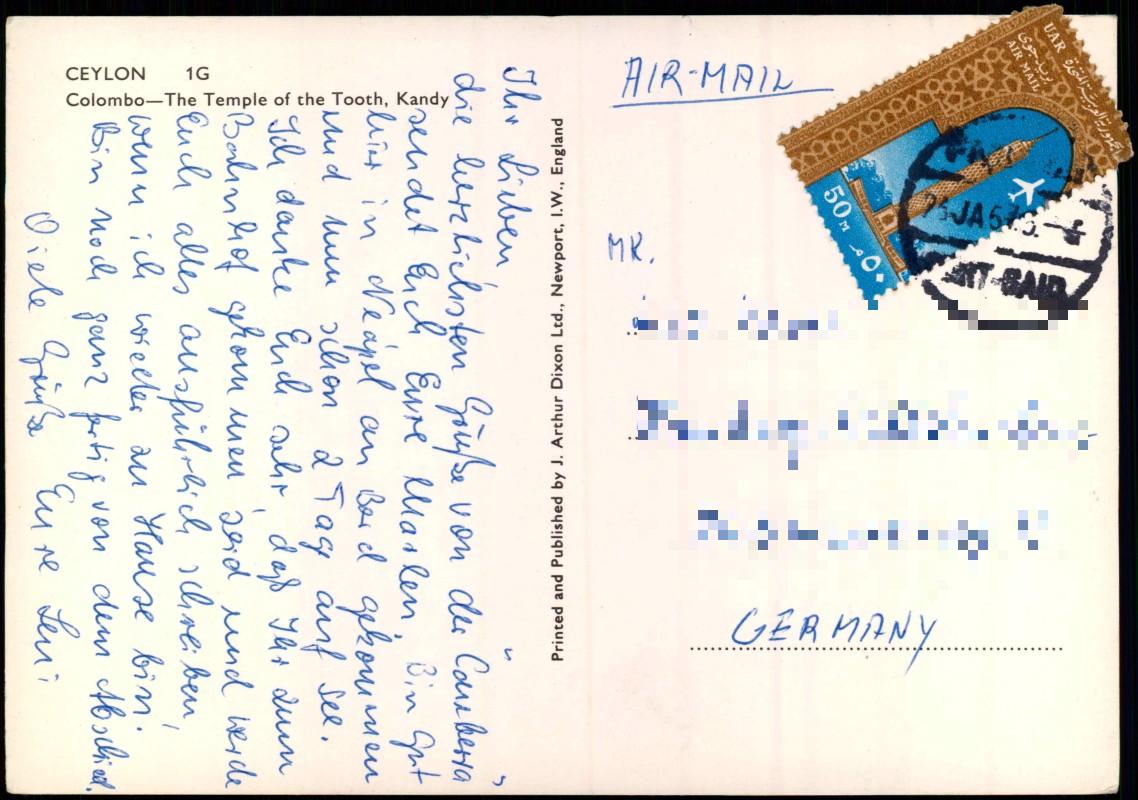 CEYLON 1G
Colombo—The Temple of the Tooth, Kandy
Ihr Lieben
die herzlichsten Grüße von der "Canberra"
sendet Euch Eure Marlen. Bin gut
hier in Neapel an Bord gekommen
und nun schon 2 Tage auf See.
Ich danke Euch sehr, daß Ihr zum
Bahnhof gekommen seid und werde
Euch alles ausführlich schreiben,
wenn ich wieder zu Hause bin.
Bin noch ganz fertig von dem Abschied.
Viele Grüße Eure Leni
Printed and Published by J. Arthur Dixon Ltd., Newport, I.W., England
AIR-MAIL
UAR
الجمهورية العربية المتحدة
بريد جوى
AIR MAIL
50 M
٥٠ م
JA 67
PORT-SAID
MR.
GERMANY